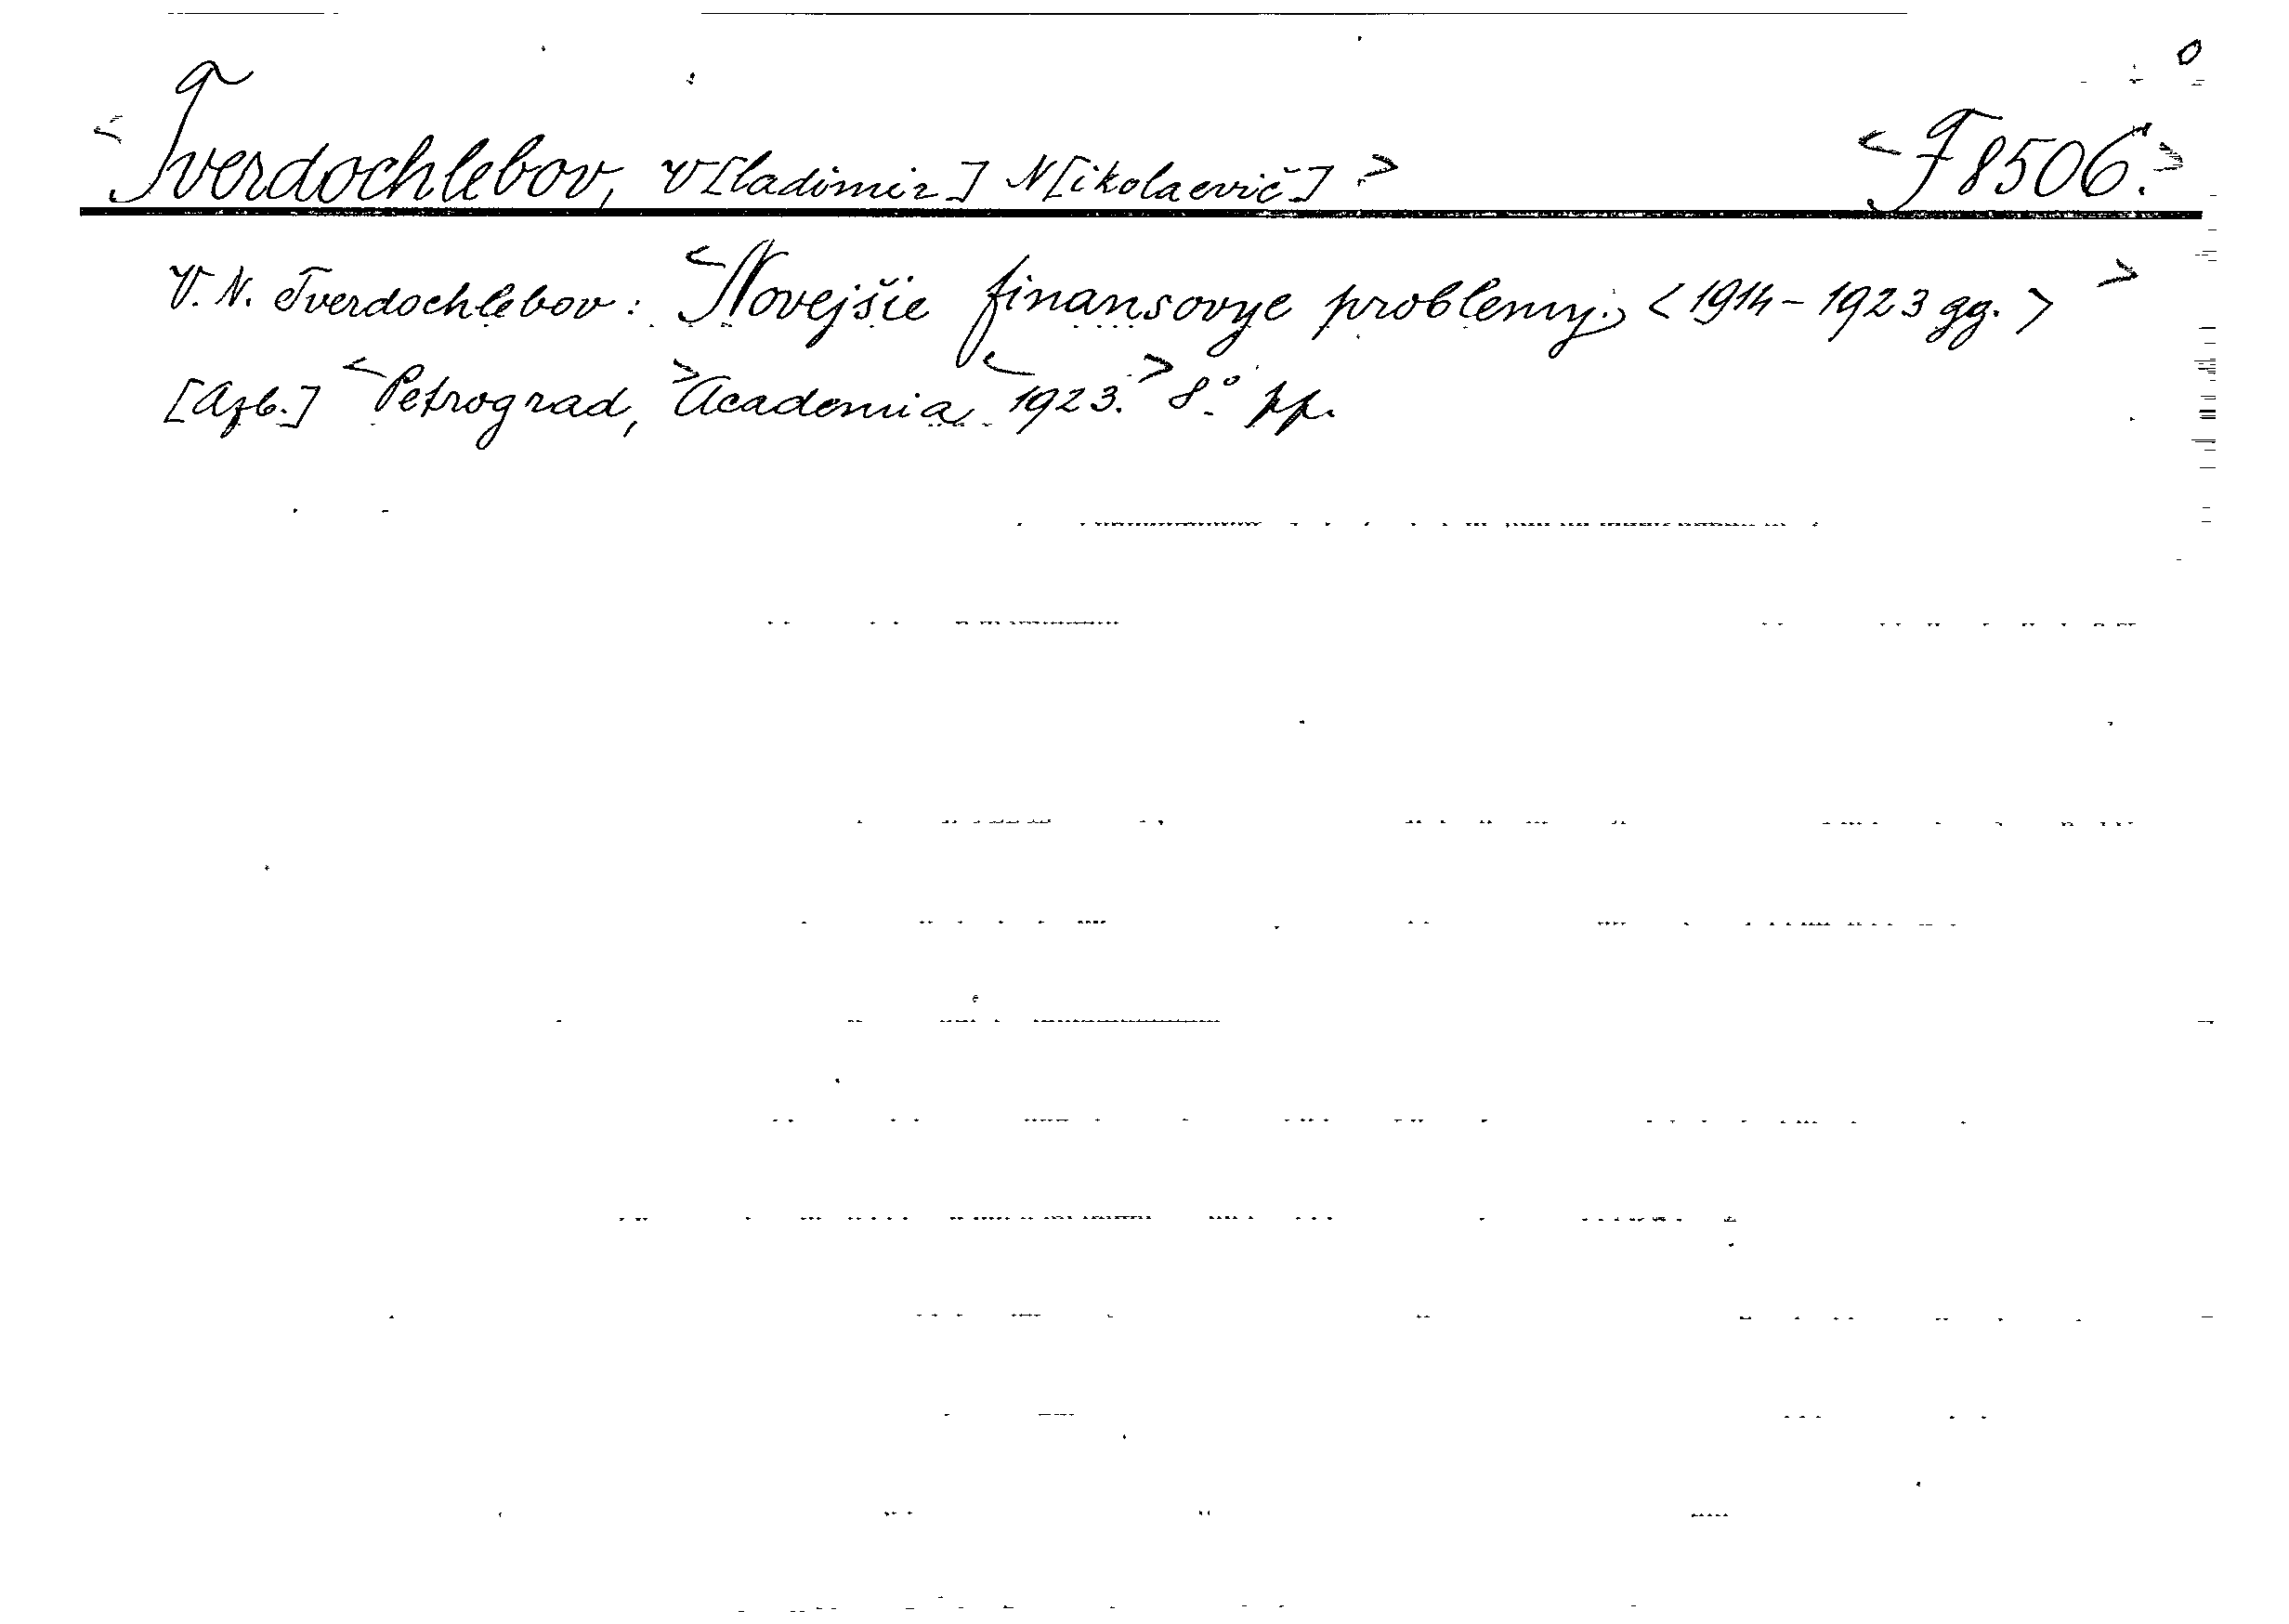 <Tverdochlebov, V[ladimir] N[ikolaevič]> <F 8506.>
V. N. Tverdochlebov: <Novejšie finansovye problemy. <1914-1923 gg.> >
[Azb.] <Petrograd, >Academia <1923.> 8° pp.